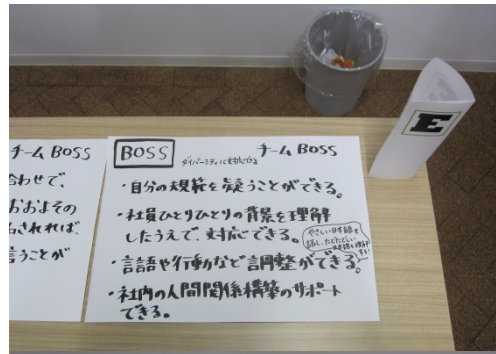 チーム BOSS
合わせで、
おおよその
されれば、
言うことが
BOSS
ダイバーシティに対応できる
チーム BOSS
・自分の規範を疑うことができる。
・社員ひとりひとりの背景を理解
したうえで、対応できる。
やさしい日本語を
話し、たどたどしい
・言語や行動など調整ができる。
・社内の人間関係構築のサポート
できる。
E